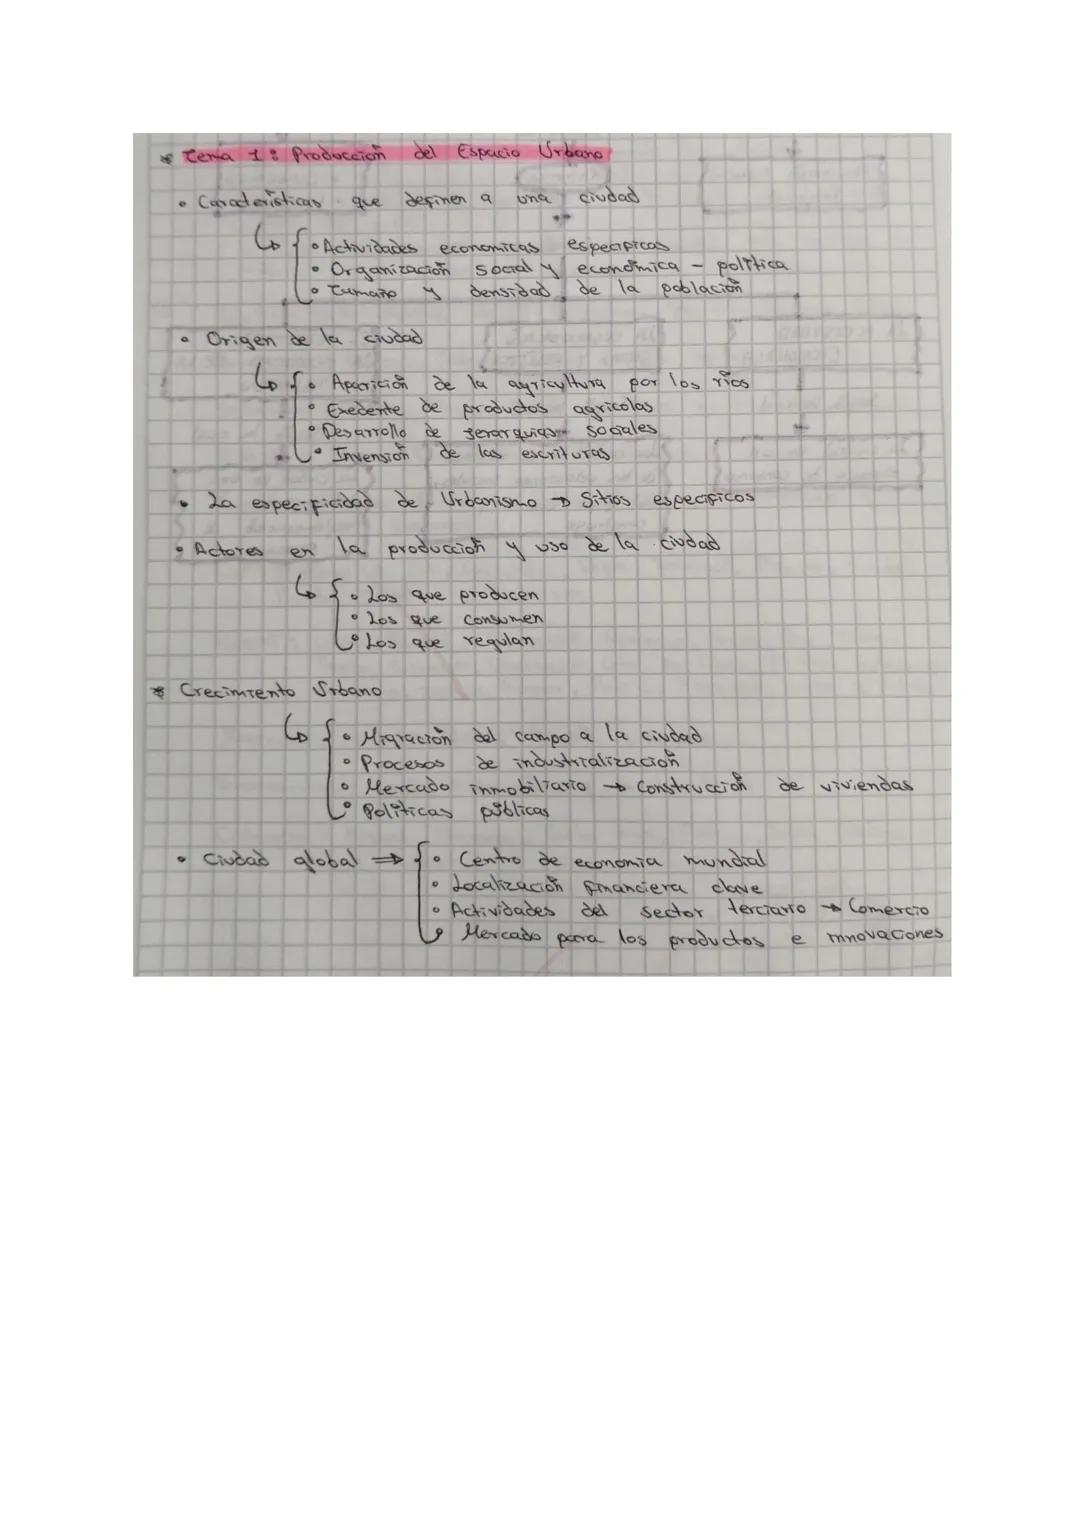 * Tema 1: Producción del Espacio Urbano
• Características que definen a una ciudad
↳ { • Actividades economicas especificas
• Organización social y económica - política
• Tamaño y densidad de la población
• Origen de la ciudad
↳ { • Aparición de la agricultura por los ríos
• Exedente de productos agricolas
• Desarrollo de jerarquias sociales
• Invensión de las escrituras
• La especificidad de Urbanismo → Sitios especificos
• Actores en la producción y uso de la ciudad
↳ { • Los que producen
• Los que consumen
• Los que regulan
* Crecimiento Urbano
↳ { • Migración del campo a la ciudad
• Procesos de industrialización
• Mercado inmobiliario → Construcción de viviendas
• Políticas públicas
• Ciudad global ⇒ { • Centro de economia mundial
• Localización financiera clave
• Actividades del sector terciario → Comercio
• Mercado para los productos e innovaciones